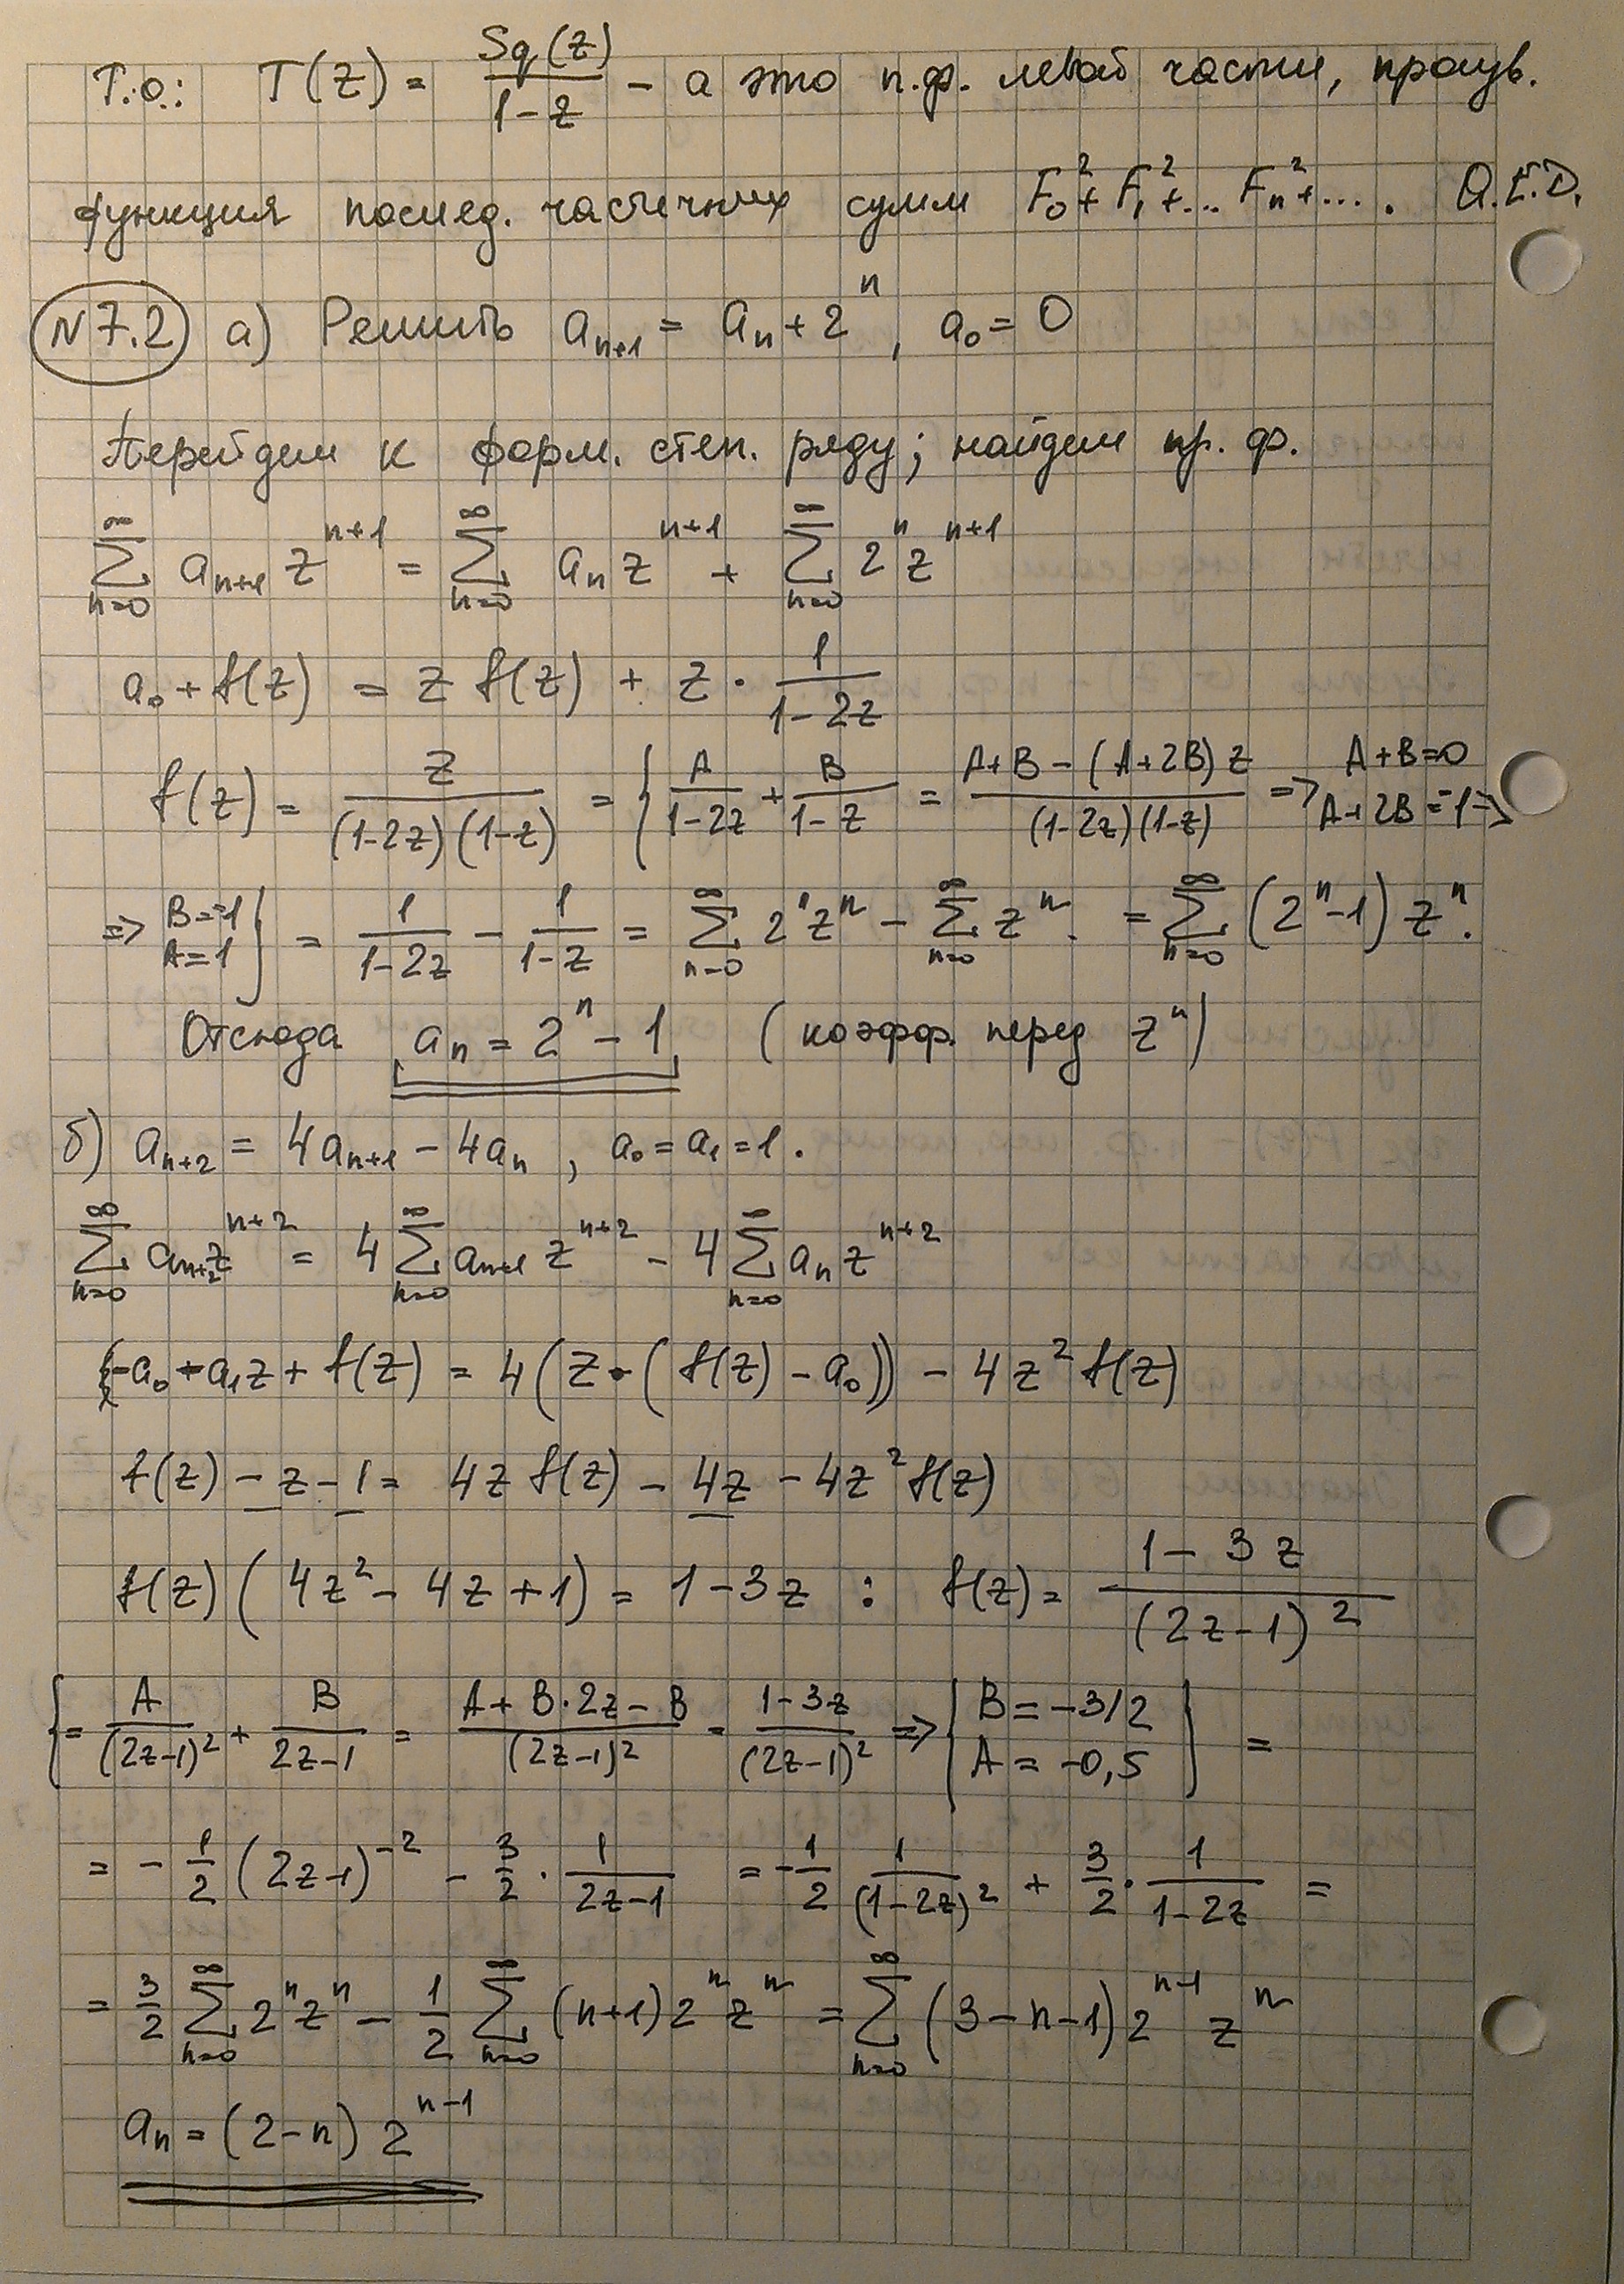 Т.о.: T(z) = Sq(z)/(1-z) - а это п.ф. левой части, произв.
функция послед. частичных сумм F₀²+F₁²+... Fₙ²+.... Q.E.D.
N7.2 а) Решить aₙ₊₁ = aₙ + 2ⁿ, a₀ = 0
Перейдем к форм. степ. ряду; найдем пр. ф.
∑_{n=0}^∞ aₙ₊₁ z^{n+1} = ∑_{n=0}^∞ aₙ z^{n+1} + ∑_{n=0}^∞ 2ⁿ z^{n+1}
a₀ + f(z) = z f(z) + z · 1/(1-2z)
f(z) = z/((1-2z)(1-z)) = { A/(1-2z) + B/(1-z) = (A+B-(A+2B)z)/((1-2z)(1-z)) => A+B=0 A+2B=-1 =>
=> B=-1 A=1 } = 1/(1-2z) - 1/(1-z) = ∑_{n=0}^∞ 2ⁿzⁿ - ∑_{n=0}^∞ zⁿ. = ∑_{n=0}^∞ (2ⁿ-1) zⁿ.
Отсюда aₙ = 2ⁿ - 1 (коэфф. перед zⁿ)
б) aₙ₊₂ = 4aₙ₊₁ - 4aₙ, a₀ = a₁ = 1.
∑_{n=0}^∞ aₙ₊₂ z^{n+2} = 4∑_{n=0}^∞ aₙ₊₁ z^{n+2} - 4∑_{n=0}^∞ aₙ z^{n+2}
-a₀ - a₁z + f(z) = 4(z·(f(z) - a₀)) - 4z² f(z)
f(z) - z - 1 = 4z f(z) - 4z - 4z² f(z)
f(z)(4z² - 4z + 1) = 1 - 3z : f(z) = (1-3z)/(2z-1)²
{= A/(2z-1)² + B/(2z-1) = (A+B·2z-B)/(2z-1)² = (1-3z)/(2z-1)² => { B = -3/2 A = -0,5 } =
= -1/2 (2z-1)⁻² - 3/2 · 1/(2z-1) = -1/2 1/(1-2z)² + 3/2 · 1/(1-2z) =
= 3/2 ∑_{n=0}^∞ 2ⁿzⁿ - 1/2 ∑_{n=0}^∞ (n+1) 2ⁿ zⁿ = ∑_{n=0}^∞ (3-n-1) 2^{n-1} zⁿ
aₙ = (2-n) 2^{n-1}